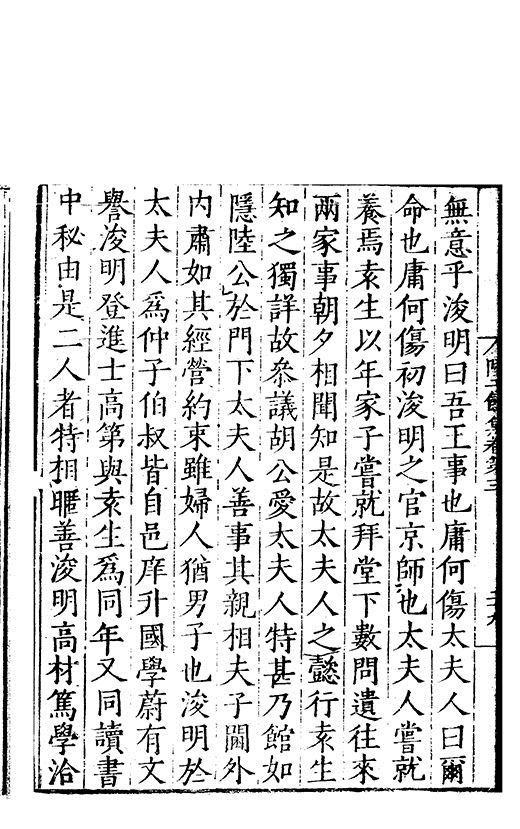 無意乎浚明曰吾王事也庸何傷太夫人曰爾
命也庸何傷初浚明之官京師也太夫人嘗就
養焉袁生以年家子嘗就拜堂下數問遺往來
兩家事朝夕相聞知是故太夫人之懿行袁生
知之獨詳故叅議胡公愛太夫人特甚乃館如
隱陸公於門下太夫人善事其親相夫子閫外
内肅如其經營約束雖婦人猶男子也浚明於
太夫人爲仲子伯叔皆自邑庠升國學蔚有文
譽浚明登進士高第與袁生爲同年又同讀書
中秘由是二人者特相暱善浚明高材篤學洽